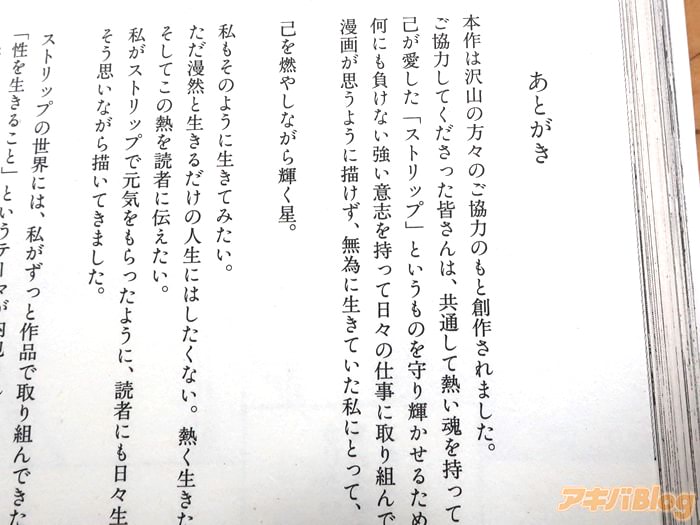 あとがき
本作は沢山の方々のご協力のもと創作されました。
ご協力してくださった皆さんは、共通して熱い魂を持って
己が愛した「ストリップ」というものを守り輝かせるため
何にも負けない強い意志を持って日々の仕事に取り組んで
漫画が思うように描けず、無為に生きていた私にとって、
己を燃やしながら輝く星。
私もそのように生きてみたい。
ただ漫然と生きるだけの人生にはしたくない。熱く生きた
そしてこの熱を読者に伝えたい。
私がストリップで元気をもらったように、読者にも日々生
そう思いながら描いてきました。
ストリップの世界には、私がずっと作品で取り組んできた
「性を生きること」というテーマが
アキバBlog